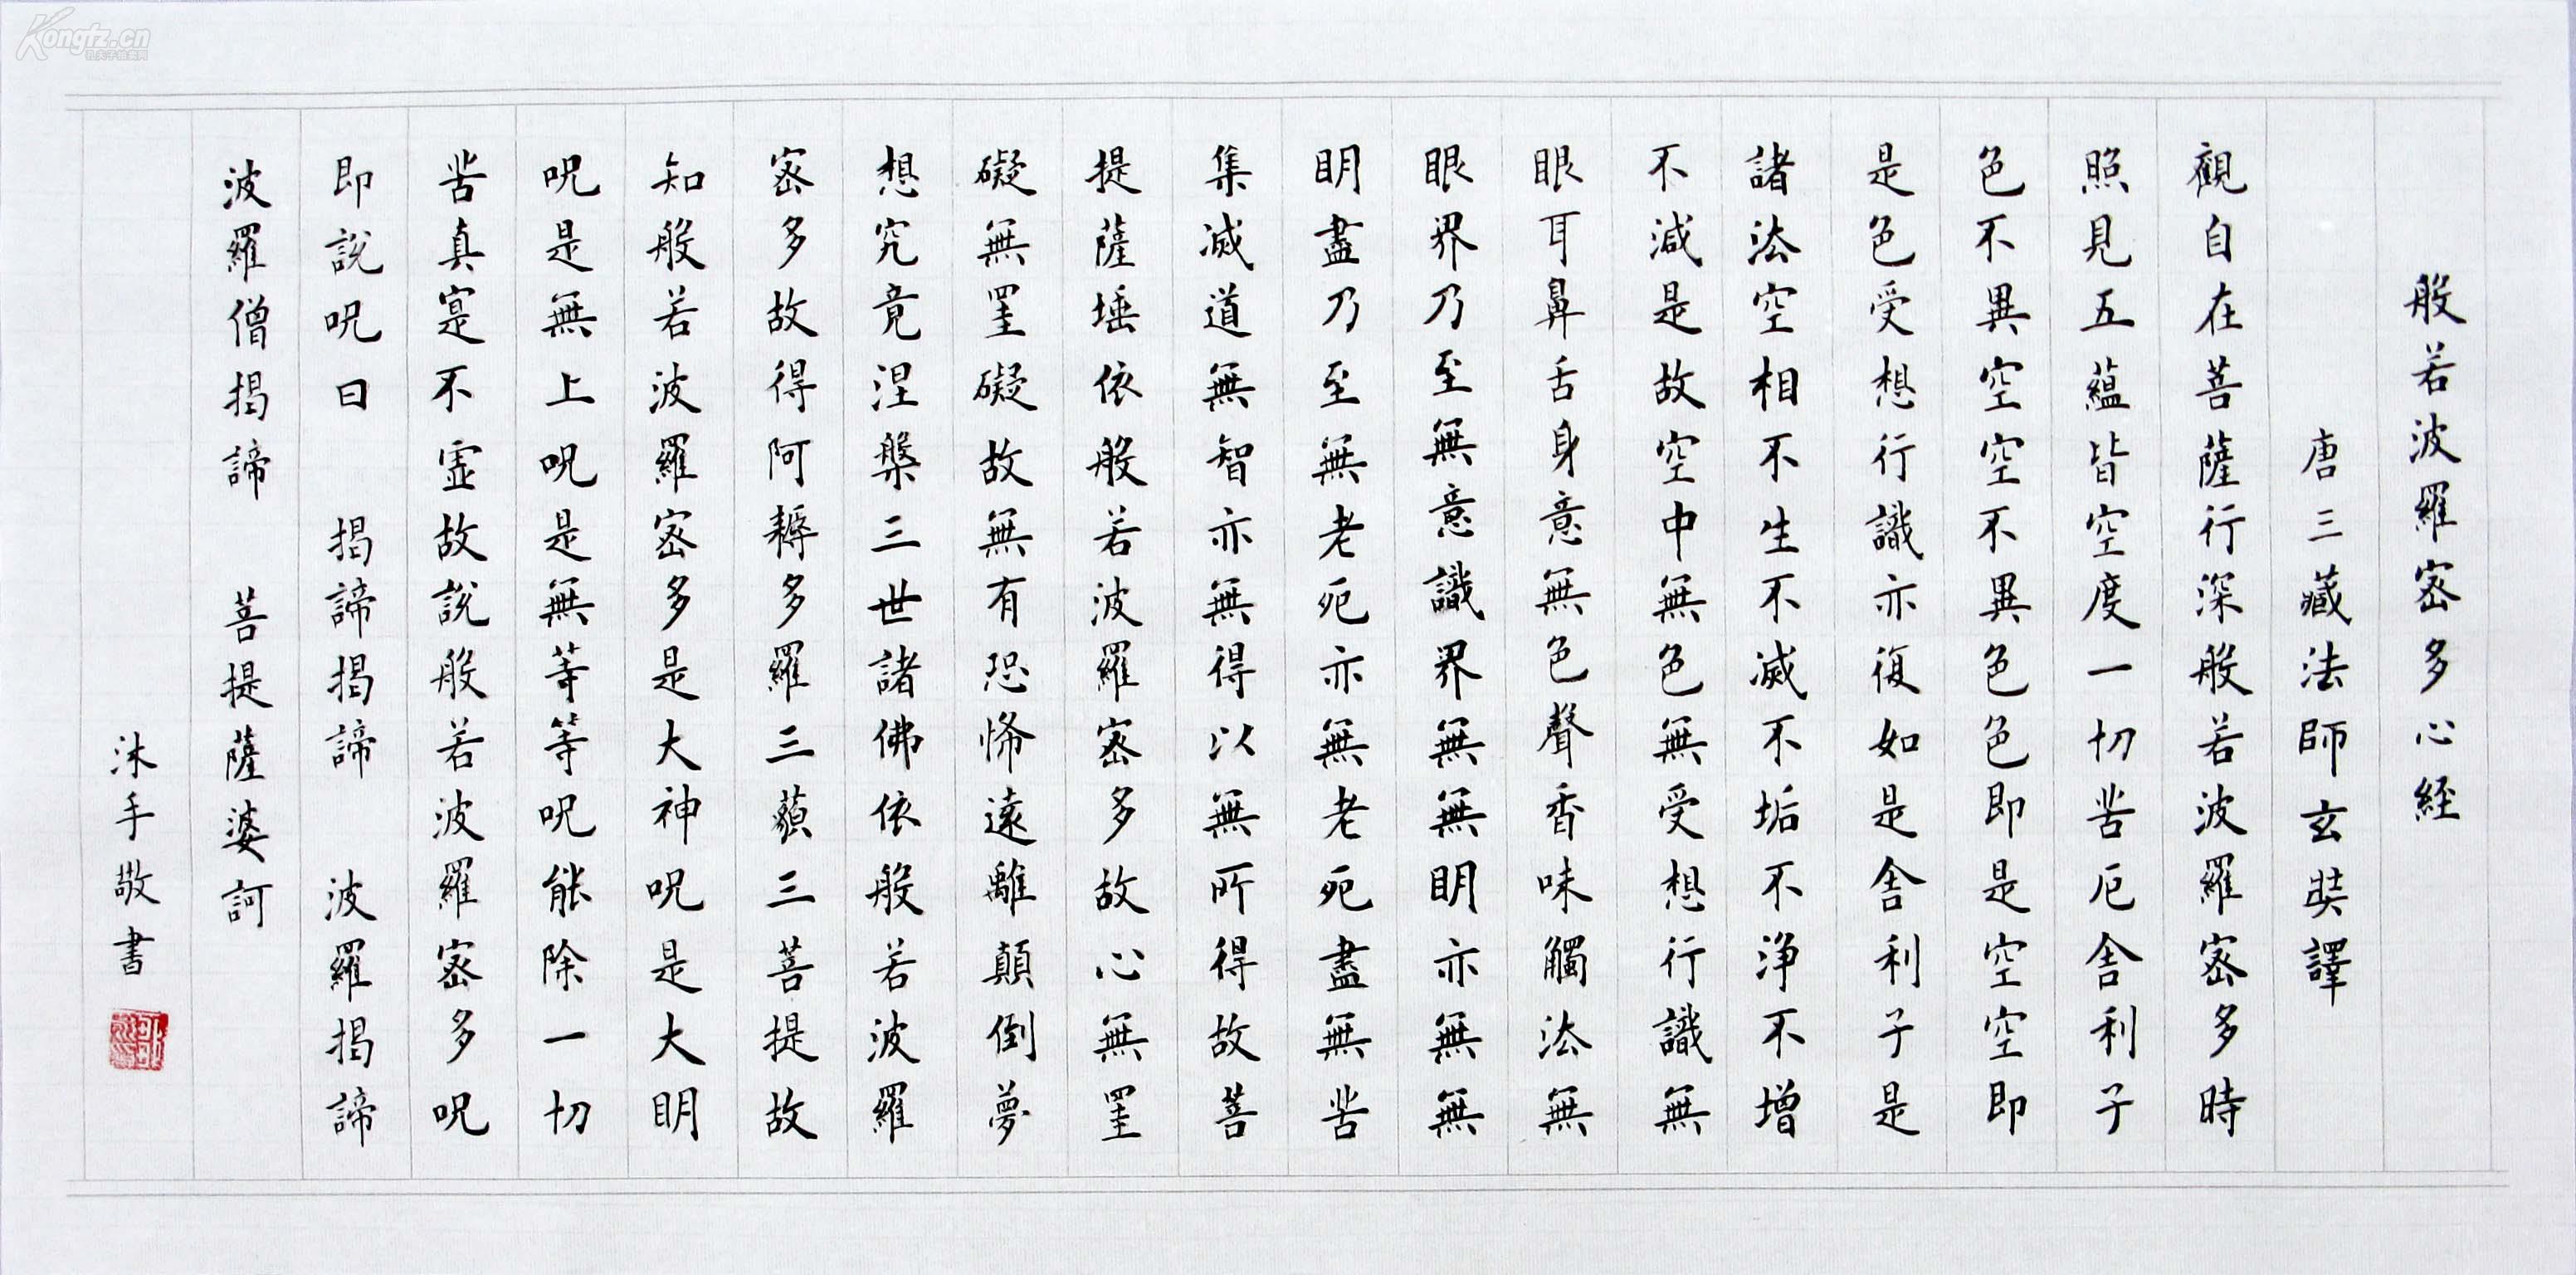 般若波羅密多心経
唐三藏法師玄奘譯
觀自在菩薩行深般若波羅密多時
照見五蘊皆空度一切苦厄舍利子
色不異空空不異色色即是空空即
是色受想行識亦復如是舍利子是
諸法空相不生不滅不垢不淨不增
不減是故空中無色無受想行識無
眼耳鼻舌身意無色聲香味觸法無
眼界乃至無意識界無無明亦無無
明盡乃至無老死亦無老死盡無苦
集滅道無智亦無得以無所得故菩
提薩埵依般若波羅密多故心無罣
礙無罣礙故無有恐怖遠離顛倒夢
想究竟涅槃三世諸佛依般若波羅
密多故得阿耨多羅三藐三菩提故
知般若波羅密多是大神呪是大明
呪是無上呪是無等等呪能除一切
苦真實不虛故說般若波羅密多呪
即說呪曰 揭諦揭諦 波羅揭諦
波羅僧揭諦 菩提薩婆訶
沐手敬書
Kongfz.cn
孔夫子拍卖网